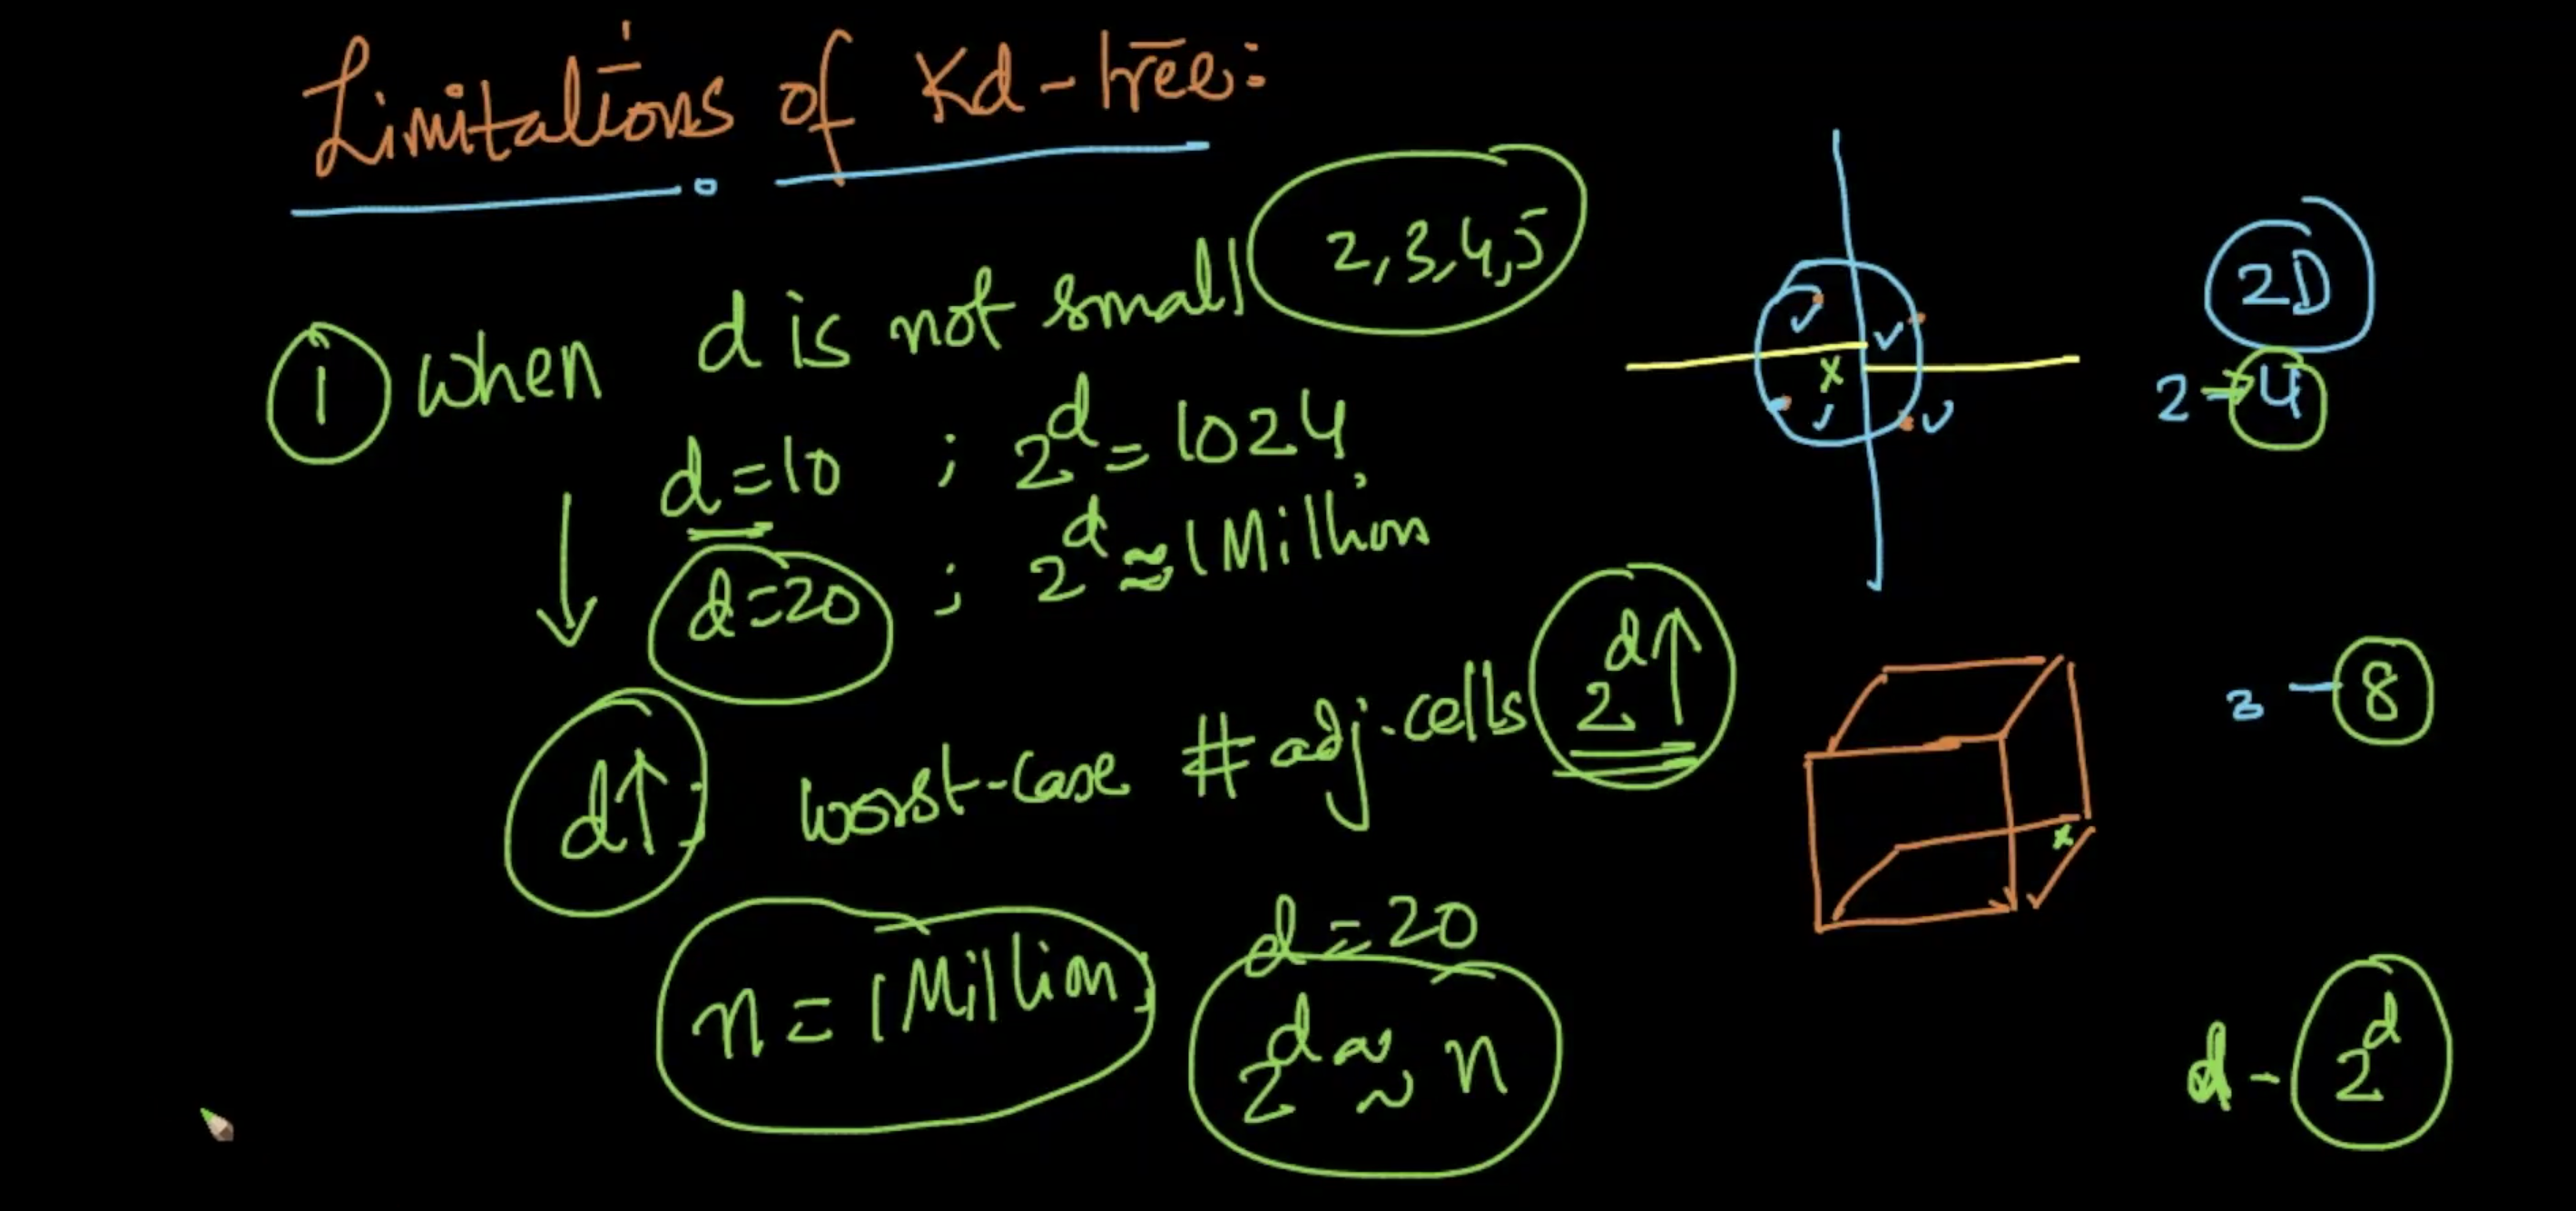 Limitations of Kd-tree:
① When d is not small 2,3,4,5
d=10 ; 2^d = 1024
d=20 ; 2^d ≈ 1 Million
d↑; worst-case # adj-cells 2^d↑
n = 1 Million; d=20
2^d ≈ n
2D
2 → 4
3 - 8
d - 2^d